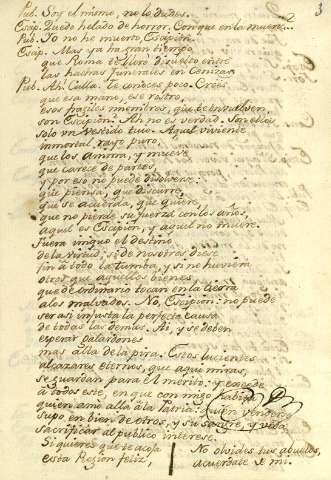 3
Pub. Soy el mismo, no lo dudes.
Escip. Quedo helado de horror. Conque en la muerte...
Pub. Yo no he muerto, Escipion.
Escip. Mas ya ha gran tiempo,
que Roma te lloró disuelto entre
las hachas funerales en Cenizas.
Pub. Ah! Calla. Te conoces poco. Crees
que esa mano, ese rostro,
esos fragiles miembros, que te envuelven
son Escipion? Ah no es verdad. Son ellos
solo un vestido tuyo. Aquel viviente
inmortal rayo puro,
que los anima, y mueve
que carece de partes,
y por eso no puede disolverse
que piensa, que discurre,
que se acuerda, que quiere,
que no pierde su fuerza con los años,
aquel es Escipion, y aquel no muere.
Fuera iniquo el destino
de la virtud, si de nosotros diese
fin á todo la tumba, y si no huviera
otros que aquellos bienes
que de ordinario tocan en la tierra
a los malvados. No, Escipion: no puede
ser asi injusta la perfecta causa
de todas las demas. Ai, y se deben
esperar galardones
mas alla de la pira. Estos lucientes
alcazares eternos, que aqui miras,
se guardan para el merito: y excede
à todos este, en que conmigo habita
quien amo allá à la Patria: quien vender
supo en bien de otros, y su sangre, y vida
sacrificar al publico interese.
Si quieres que te acoja
esta Region feliz,
No olvides tus abuelos,
acuerdate de mi.